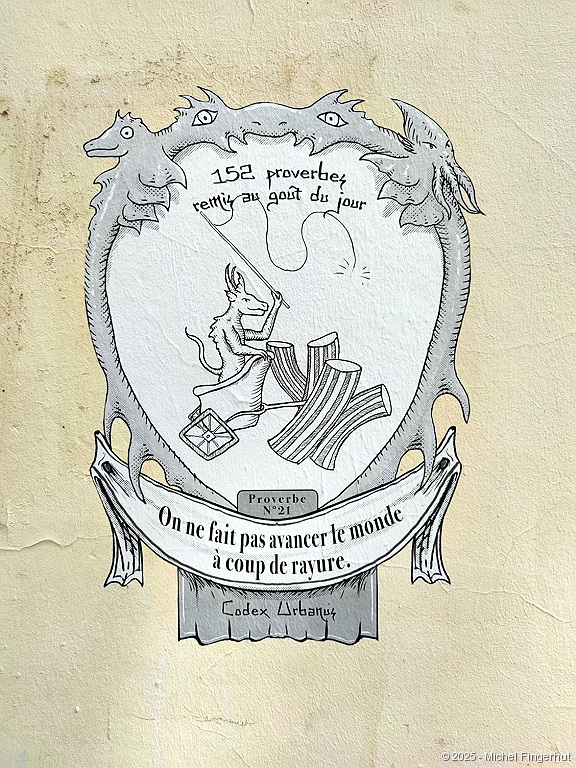 152 proverbes
remis au goût du jour
Proverbe
N°21
On ne fait pas avancer le monde
à coup de rayure.
Codex Urbanus
© 2025 - Michel Fingerhut